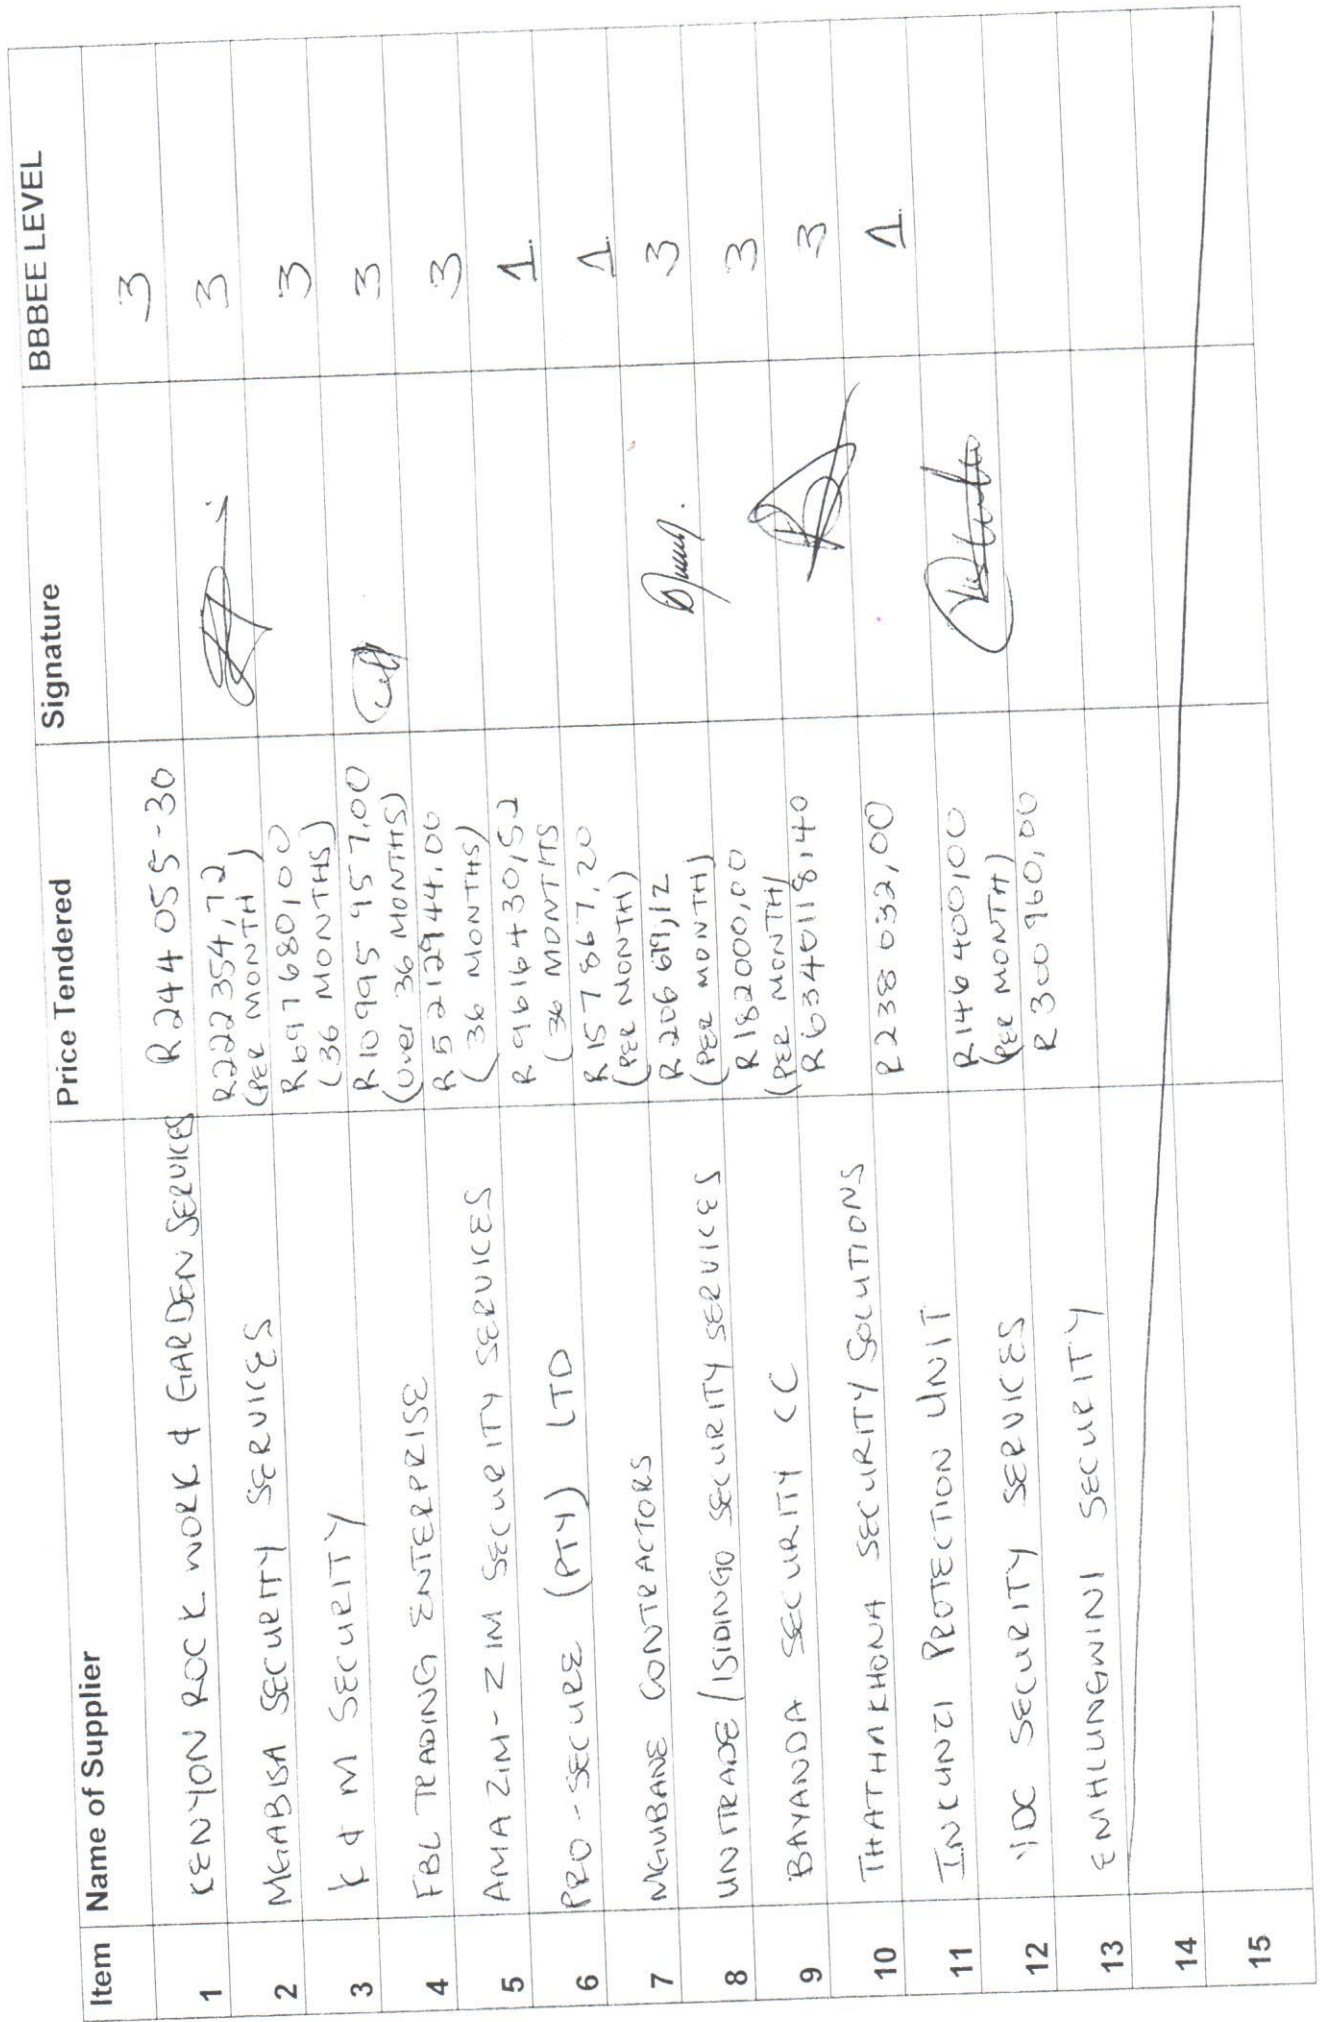 Item Name of Supplier Price Tendered Signature BBBEE LEVEL
1 KENYON ROCK WORK & GARDEN SERVICES R244 055-30 3
2 MGABISA SECURITY SERVICES R222 354,72 3
(PER MONTH)
3 K & M SECURITY R697680,00 3
(36 MONTHS)
4 FBL TRADING ENTERPRISE R10 995 957,00 3
(over 36 MONTHS)
5 AMAZIM-ZIM SECURITY SERVICES R5 212944,00 3
(36 MONTHS)
6 PRO-SECURE (PTY) LTD R9616430,52 1.
(36 MONTHS
7 MGUBANE CONTRACTORS R157867,20 1.
(PER MONTH)
8 UNITRADE/ISIDINGO SECURITY SERVICES (PER MONTH) 3
9 BAYANDA SECURITY CC R182000,00 3
(PER MONTH)
10 THATHAKHONA SECURITY SOLUTIONS 3
11 INKUNZI PROTECTION UNIT R238 032,00 1.
12 IDC SECURITY SERVICES R146400,00
(PER MONTH)
13 EMHLUNGWINI SECURITY R300960,00
14
15